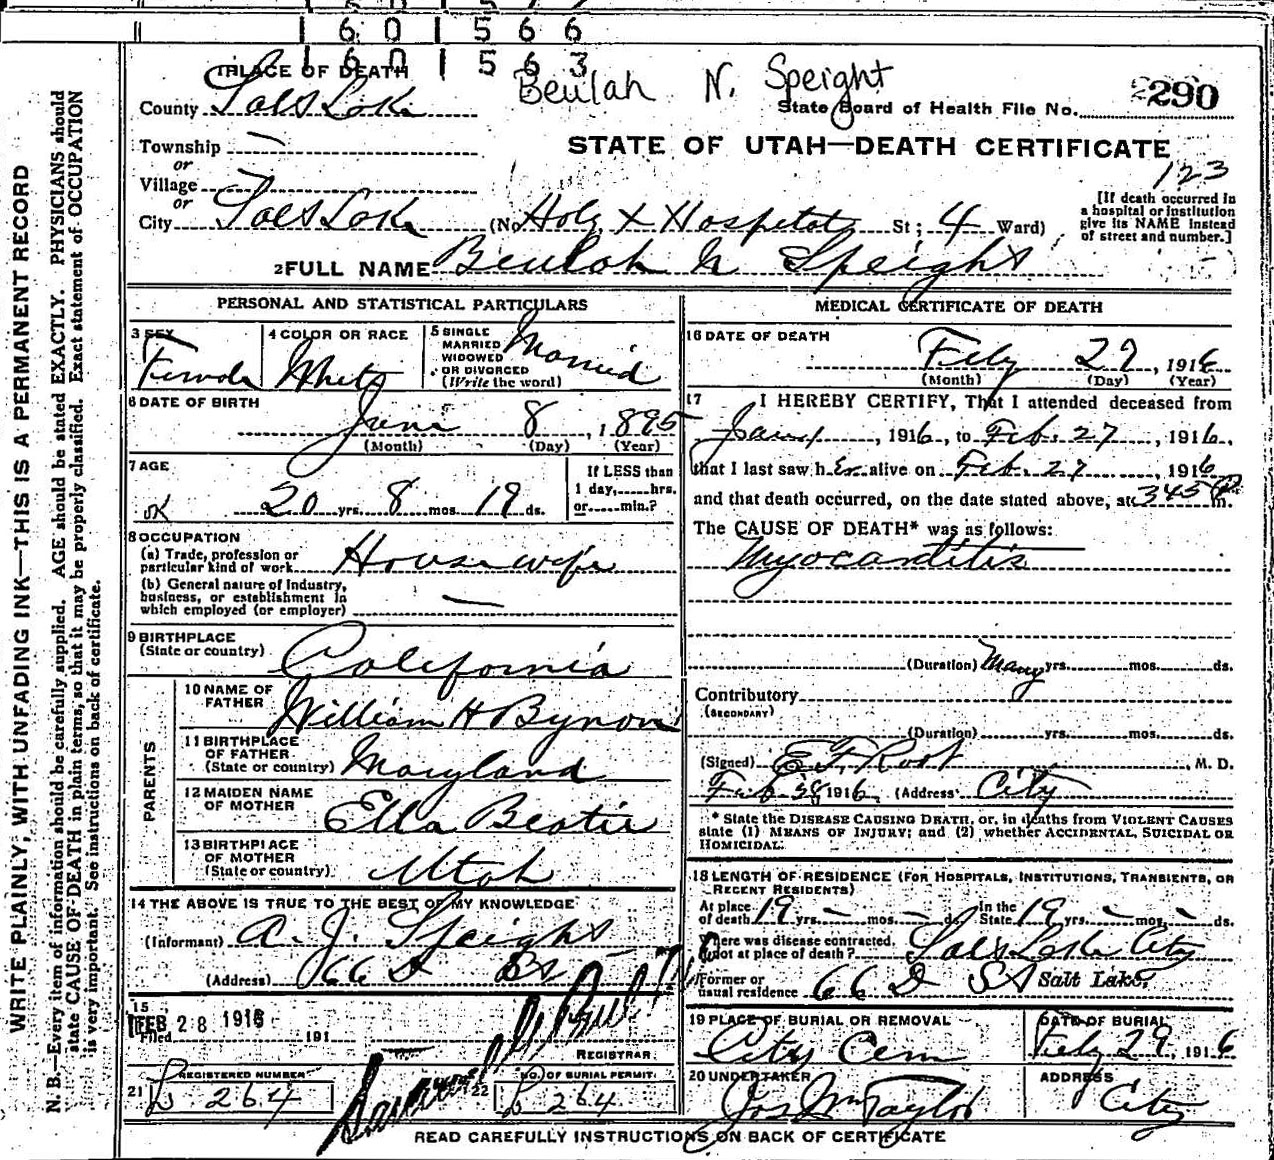 1 6 0 1 5 6 6
1 6 0 1 5 6 3
Beulah N. Speight
1 PLACE OF DEATH
County Salt Lake
State Board of Health File No. 290
Township —
STATE OF UTAH—DEATH CERTIFICATE
or
Village
123
or
City Salt Lake (No Holy X Hospital St; 4 Ward)
[If death occurred in
a hospital or institution
give its NAME instead
of street and number.]
2 FULL NAME Beulah N Speight
PERSONAL AND STATISTICAL PARTICULARS
3 SEX
Female
4 COLOR OR RACE
White
5 SINGLE
MARRIED
WIDOWED
OR DIVORCED
(Write the word)
Married
6 DATE OF BIRTH
June 8, 1895
(Month) (Day) (Year)
7 AGE
OK 20 yrs. 8 mos. 19 ds.
If LESS than
1 day, hrs.
or min.?
8 OCCUPATION
(a) Trade, profession or
particular kind of work Housewife
(b) General nature of Industry,
business, or establishment in
which employed (or employer) —
9 BIRTHPLACE
(State or country) California
PARENTS
10 NAME OF
FATHER William H Bynon
11 BIRTHPLACE
OF FATHER
(State or country) Maryland
12 MAIDEN NAME
OF MOTHER Ella Beatie
13 BIRTHPLACE
OF MOTHER
(State or country) Utah
14 THE ABOVE IS TRUE TO THE BEST OF MY KNOWLEDGE
(Informant) A. J. Speight
(Address) 66 D St
15
FEB 28 1916
Filed 191
REGISTRAR
21 REGISTERED NUMBER
L 264
22 NO. OF BURIAL PERMIT
L 264
MEDICAL CERTIFICATE OF DEATH
16 DATE OF DEATH
Feby 27, 1916
(Month) (Day) (Year)
17 I HEREBY CERTIFY, That I attended deceased from
Jany, 1916, to Feb. 27, 1916,
that I last saw her alive on Feb. 27, 1916
and that death occurred, on the date stated above, at 345 P m.
The CAUSE OF DEATH* was as follows:
Myocarditis
(Duration) Many yrs. mos. ds.
Contributory
(SECONDARY)
(Duration) yrs. mos. ds.
(Signed) E. F. Root, M. D.
Feb 28 1916 (Address) City
* State the DISEASE CAUSING DEATH, or, in deaths from VIOLENT CAUSES
state (1) MEANS OF INJURY; and (2) whether ACCIDENTAL, SUICIDAL OR
HOMICIDAL.
18 LENGTH OF RESIDENCE (FOR HOSPITALS, INSTITUTIONS, TRANSIENTS, OR
RECENT RESIDENTS)
At place
of death 19 yrs. – mos. – ds. In the
State 19 yrs. – mos. – ds.
Where was disease contracted,
if not at place of death? Salt Lake City
Former or
usual residence 66 D St Salt Lake,
19 PLACE OF BURIAL OR REMOVAL
City Cem
DATE OF BURIAL
Feby 29, 1916
20 UNDERTAKER
Jos Wm Taylor
ADDRESS
City
READ CAREFULLY INSTRUCTIONS ON BACK OF CERTIFICATE
WRITE PLAINLY, WITH UNFADING INK—THIS IS A PERMANENT RECORD
N. B.—Every item of information should be carefully supplied. AGE should be stated EXACTLY. PHYSICIANS should
state CAUSE OF DEATH in plain terms, so that it may be properly classified. Exact statement of OCCUPATION
is very important. See instructions on back of certificate.